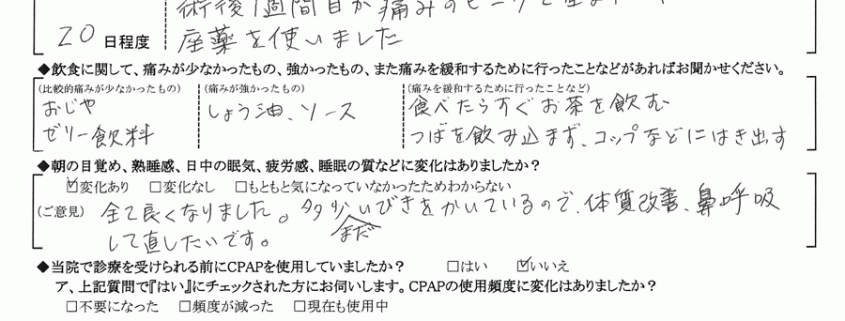 術後1週間目が痛みのピークで
20 日程度
座薬を使いました
◆飲食に関して、痛みが少なかったもの、強かったもの、また痛みを緩和するために行ったことなどがあればお聞かせください。
(比較的痛みが少なかったもの) (痛みが強かったもの) (痛みを緩和するために行ったことなど)
おじや しょう油、ソース 食べたらすぐお茶を飲む
ゼリー飲料 つばを飲み込まず、コップなどにはき出す
◆朝の目覚め、熟睡感、日中の眠気、疲労感、睡眠の質などに変化はありましたか?
☑変化あり □変化なし □もともと気になっていなかったためわからない
(ご意見) 全て良くなりました。多少いびきをかいているので、体質改善、鼻呼吸
まだ
して直したいです。
◆当院で診療を受けられる前にCPAPを使用していましたか? □はい ☑いいえ
ア、上記質問で『はい』にチェックされた方にお伺いします。CPAPの使用頻度に変化はありましたか?
□不要になった □頻度が減った □現在も使用中